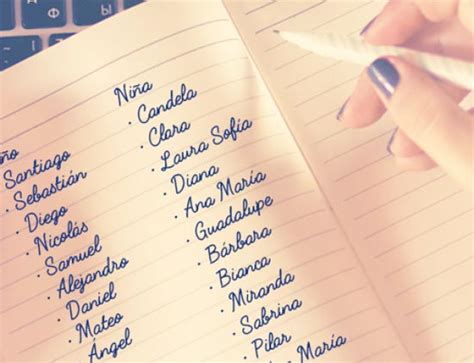 Ф
ño
Santiago
· Sebastián
· Diego
· Nicolás
· Samuel
· Alejandro
· Daniel
· Mateo
· Ángel
Niña
· Candela
· Clara
· Laura Sofía
· Diana
· Ana María
· Guadalupe
· Bárbara
· Bianca
· Miranda
· Sabrina
· Pilar
María